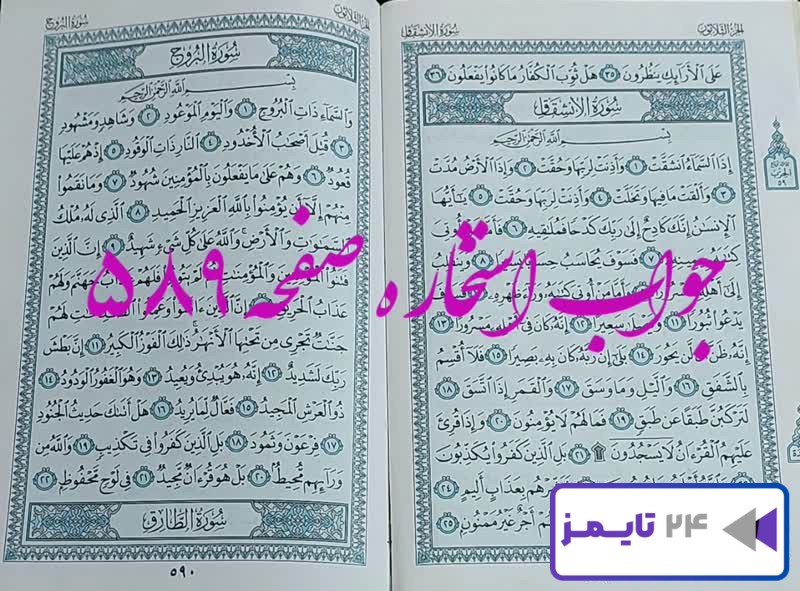 الجزء الثلاثون سورة الانشقاق
عَلَى ٱلْأَرَآئِكِ يَنظُرُونَ ٣٥ هَلْ ثُوِّبَ ٱلْكُفَّارُ مَا كَانُوا۟ يَفْعَلُونَ ٣٦
سُورَةُ الانشقاق
بِسْمِ ٱللَّهِ ٱلرَّحْمَٰنِ ٱلرَّحِيمِ
إِذَا ٱلسَّمَآءُ ٱنشَقَّتْ ١ وَأَذِنَتْ لِرَبِّهَا وَحُقَّتْ ٢ وَإِذَا ٱلْأَرْضُ مُدَّتْ
٣ وَأَلْقَتْ مَا فِيهَا وَتَخَلَّتْ ٤ وَأَذِنَتْ لِرَبِّهَا وَحُقَّتْ ٥ يَٰٓأَيُّهَا
ٱلْإِنسَٰنُ إِنَّكَ كَادِحٌ إِلَىٰ رَبِّكَ كَدْحًا فَمُلَٰقِيهِ ٦ فَأَمَّا أُوتِىَ
كِتَٰبَهُۥ بِيَمِينِهِۦ ٧ فَسَوْفَ يُحَاسَبُ حِسَابًا يَسِيرًا ٨ وَيَنقَلِبُ
إِلَىٰٓ أَهْلِهِۦ وَأَمَّا مَنْ أُوتِىَ كِتَٰبَهُۥ وَرَآءَ ظَهْرِهِۦ
يَدْعُوا۟ ثُبُورًا ١١ وَيَصْلَىٰ سَعِيرًا ١٢ إِنَّهُۥ كَانَ فِىٓ أَهْلِهِۦ مَسْرُورًا ١٣
إِنَّهُۥ ظَنَّ أَن لَّن يَحُورَ ١٤ بَلَىٰٓ إِنَّ رَبَّهُۥ كَانَ بِهِۦ بَصِيرًا ١٥ فَلَآ أُقْسِمُ
بِٱلشَّفَقِ ١٦ وَٱلَّيْلِ وَمَا وَسَقَ ١٧ وَٱلْقَمَرِ إِذَا ٱتَّسَقَ ١٨
لَتَرْكَبُنَّ طَبَقًا عَن طَبَقٍ ١٩ فَمَا لَهُمْ لَا يُؤْمِنُونَ ٢٠ وَإِذَا قُرِئَ
عَلَيْهِمُ ٱلْقُرْءَانُ لَا يَسْجُدُونَ ۩ ٢١ بَلِ ٱلَّذِينَ كَفَرُوا۟ يُكَذِّبُونَ
وَٱللَّهُ أَعْلَمُ بِعَذَابٍ أَلِيمٍ ٢٤
أَجْرٌ غَيْرُ مَمْنُونٍۭ ٢٥
الجزء الثلاثون سورة البروج
سُورَةُ البُرُوج
بِسْمِ ٱللَّهِ ٱلرَّحْمَٰنِ ٱلرَّحِيمِ
وَٱلسَّمَآءِ ذَاتِ ٱلْبُرُوجِ ١ وَٱلْيَوْمِ ٱلْمَوْعُودِ ٢ وَشَاهِدٍ وَمَشْهُودٍ
٣ قُتِلَ أَصْحَٰبُ ٱلْأُخْدُودِ ٤ ٱلنَّارِ ذَاتِ ٱلْوَقُودِ ٥ إِذْ هُمْ عَلَيْهَا
قُعُودٌ ٦ وَهُمْ عَلَىٰ مَا يَفْعَلُونَ بِٱلْمُؤْمِنِينَ شُهُودٌ ٧ وَمَا نَقَمُوا۟
مِنْهُمْ إِلَّآ أَن يُؤْمِنُوا۟ بِٱللَّهِ ٱلْعَزِيزِ ٱلْحَمِيدِ ٨ ٱلَّذِى لَهُۥ مُلْكُ
ٱلسَّمَٰوَٰتِ وَٱلْأَرْضِ وَٱللَّهُ عَلَىٰ كُلِّ شَىْءٍ شَهِيدٌ ٩ إِنَّ ٱلَّذِينَ
فَتَنُوا۟ ٱلْمُؤْمِنِينَ وَٱلْمُؤْمِنَٰتِ ثُمَّ لَمْ يَتُوبُوا۟ فَلَهُمْ عَذَابُ جَهَنَّمَ وَلَهُمْ
عَذَابُ ٱلْحَرِيقِ إِنَّ ٱلَّذِينَ ءَامَنُوا۟ وَعَمِلُوا۟ ٱلصَّٰلِحَٰتِ لَهُمْ
جَنَّٰتٌ تَجْرِى مِن تَحْتِهَا ٱلْأَنْهَٰرُ ذَٰلِكَ ٱلْفَوْزُ ٱلْكَبِيرُ ١١ إِنَّ بَطْشَ
رَبِّكَ لَشَدِيدٌ ١٢ إِنَّهُۥ هُوَ يُبْدِئُ وَيُعِيدُ ١٣ وَهُوَ ٱلْغَفُورُ ٱلْوَدُودُ ١٤
ذُو ٱلْعَرْشِ ٱلْمَجِيدُ ١٥ فَعَّالٌ لِّمَا يُرِيدُ ١٦ هَلْ أَتَىٰكَ حَدِيثُ ٱلْجُنُودِ
١٧ فِرْعَوْنَ وَثَمُودَ ١٨ بَلِ ٱلَّذِينَ كَفَرُوا۟ فِى تَكْذِيبٍ ١٩ وَٱللَّهُ مِن
وَرَآئِهِم مُّحِيطٌۢ ٢٠ بَلْ هُوَ قُرْءَانٌ مَّجِيدٌ ٢١ فِى لَوْحٍ مَّحْفُوظٍۭ ٢٢
سُورَةُ الطَّارِق
٥٩٠
جواب استخاره صفحه ۵۸۹
۲۴ تایمز